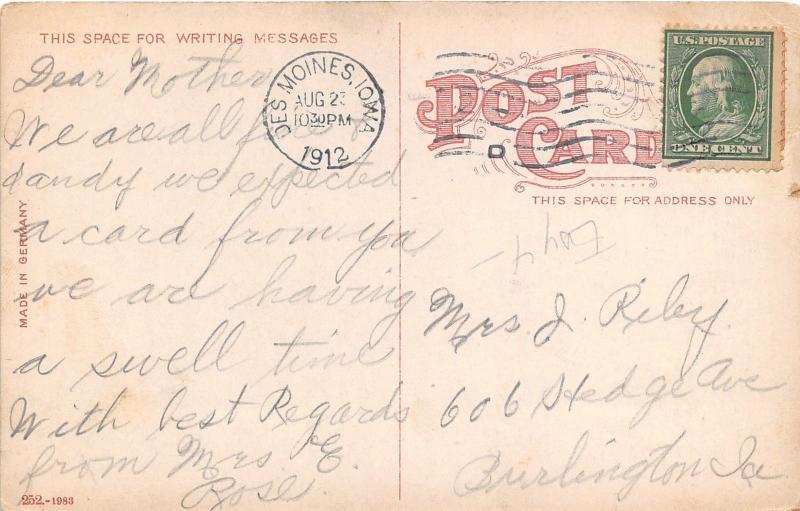 THIS SPACE FOR WRITING MESSAGES
Dear Mother
We are all fine &
dandy we expected
a card from you
we are having
a swell time
With best Regards
from Mrs E.
Rose.
MADE IN GERMANY
252.-1983
DES MOINES, IOWA
AUG 23
1030PM
1912
POST
CARD
D
U.S. POSTAGE
ONE CENT
THIS SPACE FOR ADDRESS ONLY
Mrs. J. Riley.
606 Hedge Ave
Burlington Ia